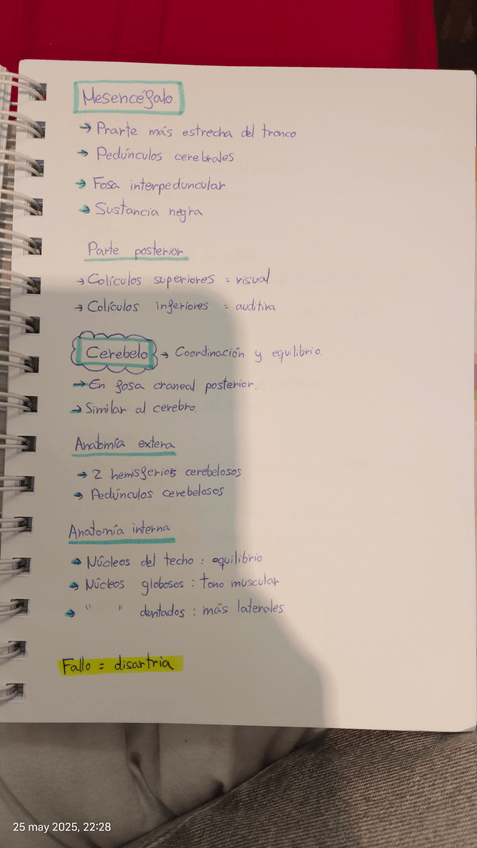 Mesencéfalo
→ Prarte más estrecha del tronco
→ Pedúnculos cerebrales
→ Fosa interpeduncular
→ Sustancia negra
Parte posterior
→ Colículos superiores = visual
→ Colículos inferiores = auditiva
Cerebelo → Coordinación y equilibrio.
→ En fosa craneal posterior.
→ Similar al cerebro.
Anatomía extera
→ 2 hemisferios cerebelosos
→ Pedúnculos cerebelosos
Anatomía interna
→ Núcleos del techo : equilibrio
→ Núcleos globosos : tono muscular
→ " " dentados : más laterales
Fallo = disartria
25 may 2025, 22:28